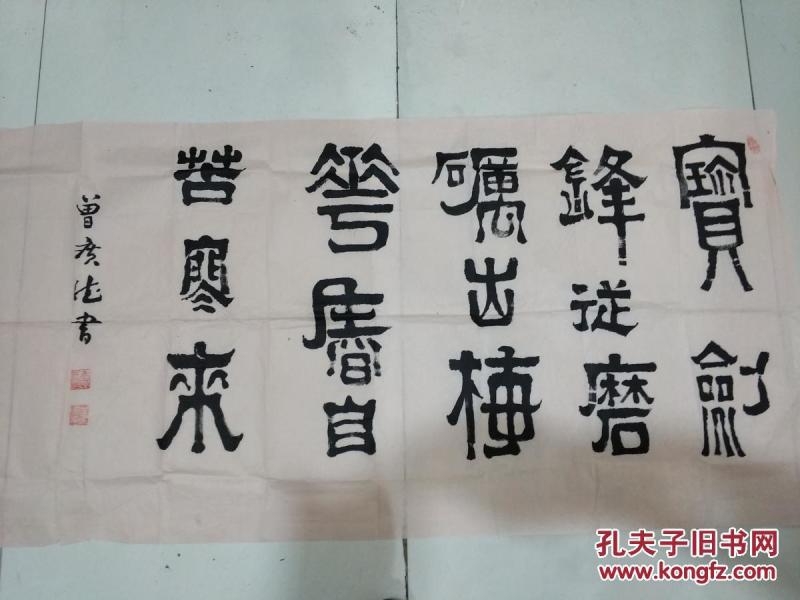 寶劍
鋒從磨
礪出梅
花香自
苦寒來
曾广德書
孔夫子旧书网
www.kongfz.com